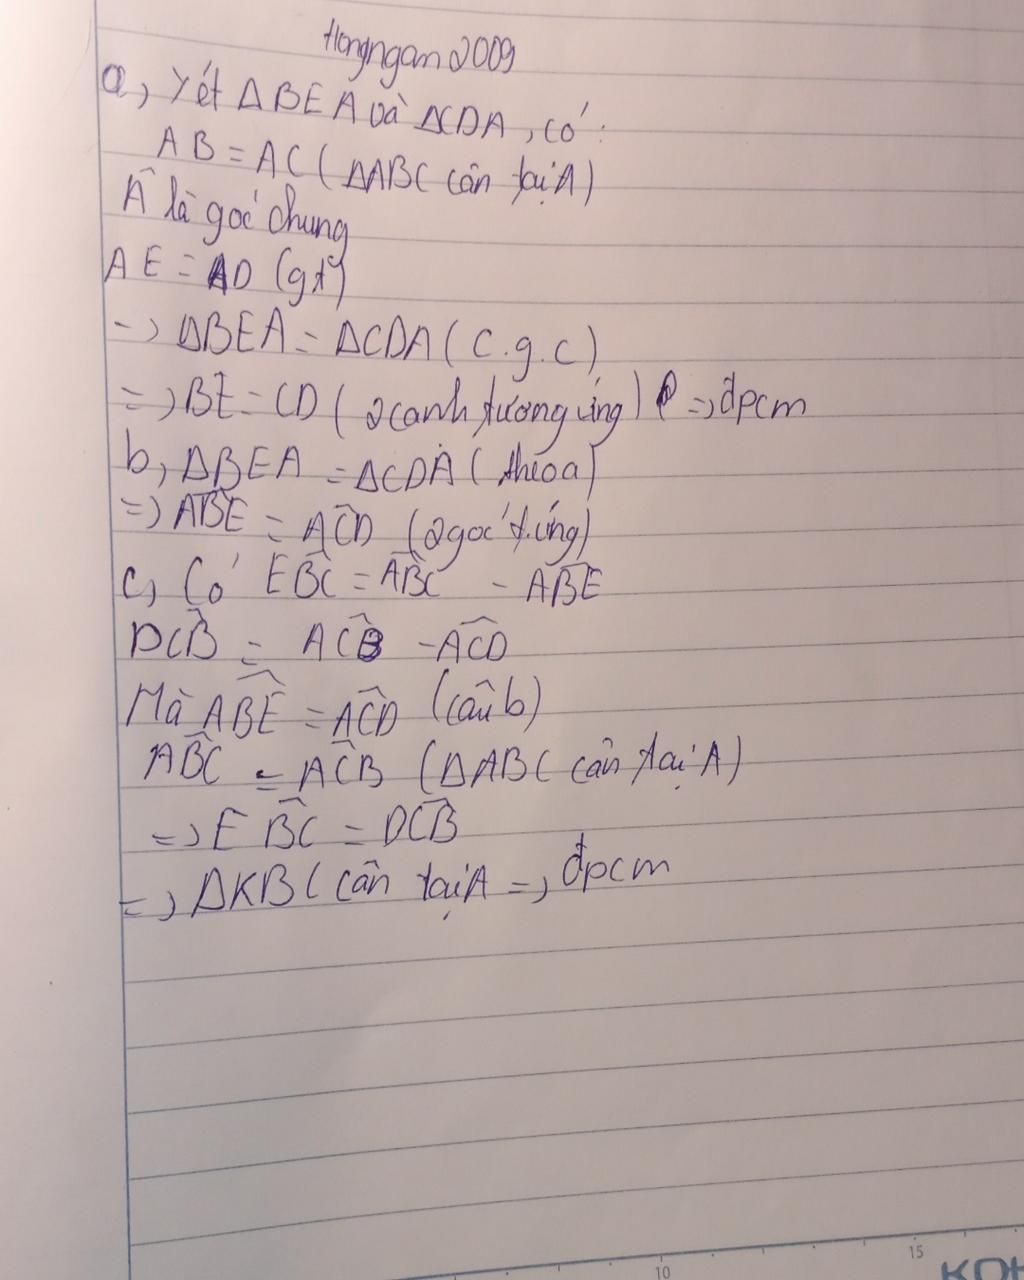 Hongngan2009
a, Xét ΔBEA và ΔCDA, có:
AB = AC (ΔABC cân tại A)
Â là góc chung
AE = AD (gt)
=> ΔBEA = ΔCDA (c.g.c)
=> BE = CD (2 cạnh tương ứng) => đpcm
b, ΔBEA = ΔCDA (theo a)
=> ABE^ = ACD^ (2 góc t.ứng)
c, Có EBC^ = ABC^ - ABE^
DCB^ = ACB^ - ACD^
Mà ABE^ = ACD^ (câu b)
ABC^ = ACB^ (ΔABC cân tại A)
=> EBC^ = DCB^
=> ΔKBC cân tại A => đpcm
10 15